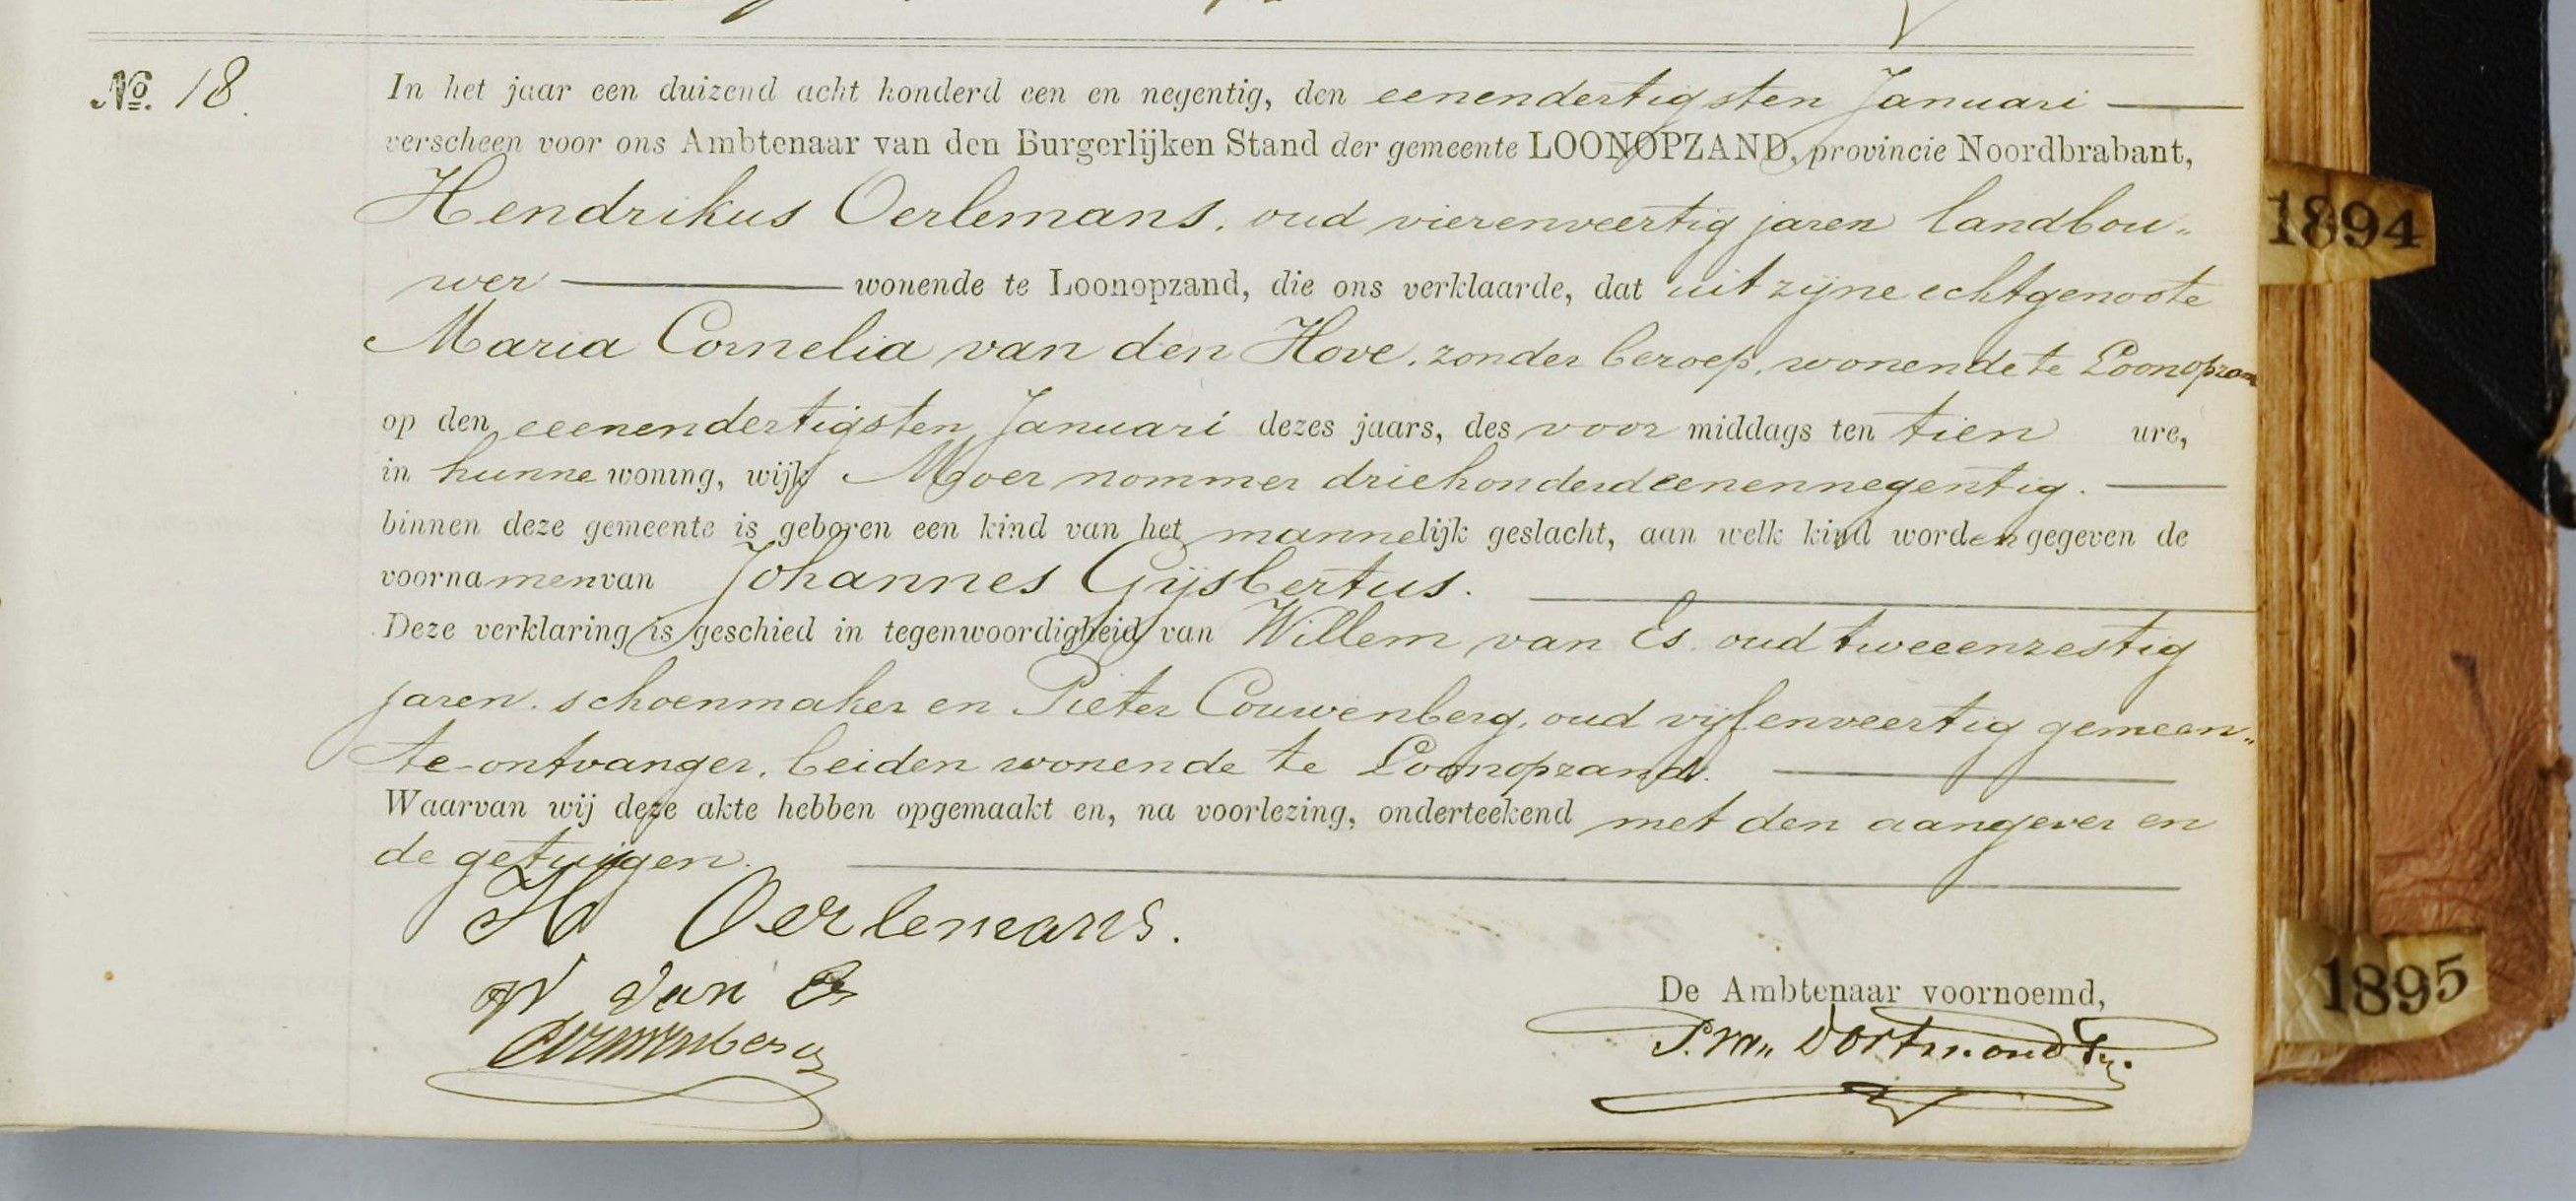 No. 18.
In het jaar een duizend acht honderd een en negentig, den eenendertigsten Januari
verscheen voor ons Ambtenaar van den Burgerlijken Stand der gemeente LOONOPZAND, provincie Noordbrabant,
Hendrikus Oerlemans, oud vierenveertig jaren landbou„
wer wonende te Loonopzand, die ons verklaarde, dat uit zijne echtgenoote
Maria Cornelia van den Hove, zonder beroep, wonende te Loonopzan
op den eenendertigsten Januari dezes jaars, des voor middags ten tien ure,
in hunne woning, wijk Moer nommer driehonderdeenennegentig.
binnen deze gemeente is geboren een kind van het mannelijk geslacht, aan welk kind worden gegeven de
voornamen van Johannes Gijsbertus.
Deze verklaring is geschied in tegenwoordigheid van Willem van Es oud tweeenzestig
jaren. schoenmaker en Pieter Couwenberg, oud vijfenveertig gemeen„
te-ontvanger, beiden wonende te Loonopzand.
Waarvan wij deze akte hebben opgemaakt en, na voorlezing, onderteekend met den aangever en
de getuigen.
H Oerlemans.
W van Es
Couwenberg
De Ambtenaar voornoemd,
P. van Dortmond
1894
1895